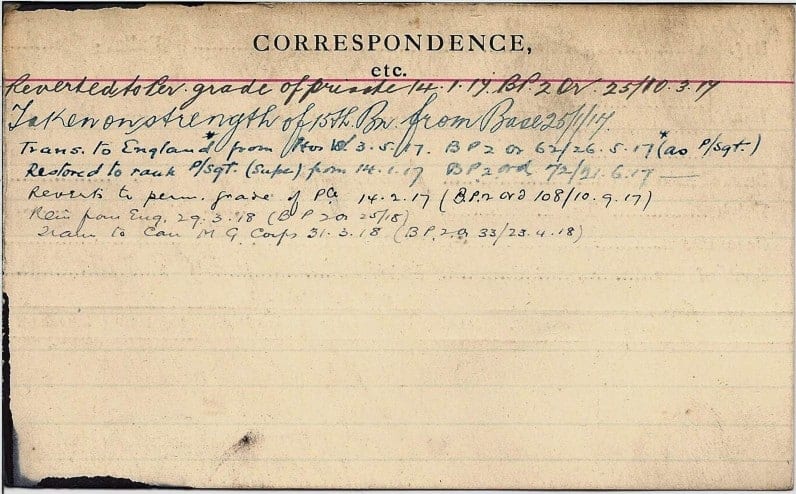 CORRESPONDENCE,
etc.
Reverted to Per. grade of private 14.1.17 BP.2 Or. 25/10.3.17
Taken on strength of 15th. Bn. from Base 25/1/17.
Trans. to England* from 3.5.17. BP2 or 62/26.5.17 *(as P/Sgt.)
Restored to rank P/Sgt. (Supe) from 14.1.17 BP.2 ord 72/21.6.17
Reverts to perm. grade of Pte 14.2.17 (BP.2 ord 108/10.9.17)
from Eng. 29.3.18 (BP2 or 25/18)
to Can M G Corps 31.3.18 (BP.2.O 33/23.4.18)